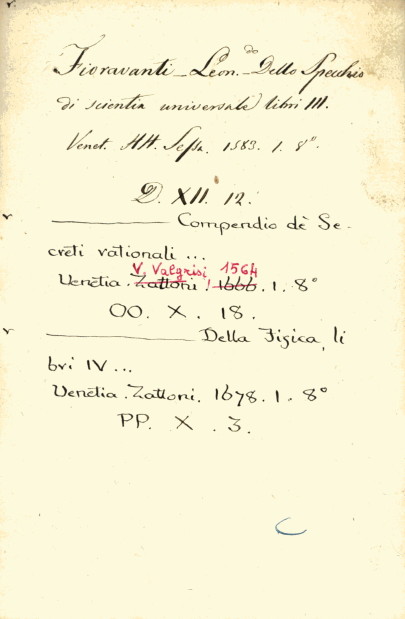 Fioravanti - Leon.do Dello Specchio
di scientia universale libri III.
Venet. HH. Sessa. 1583. 1. 8°.
D. XII. 12.
Compendio dè Se-
creti rationali ...
V. Valgrisi 1564
Venetia. Zattoni. 1666. 1. 8°
OO. X. 18.
Della Fisica, li
bri IV ...
Venetia. Zattoni. 1678. 1. 8°
PP. X. 3.